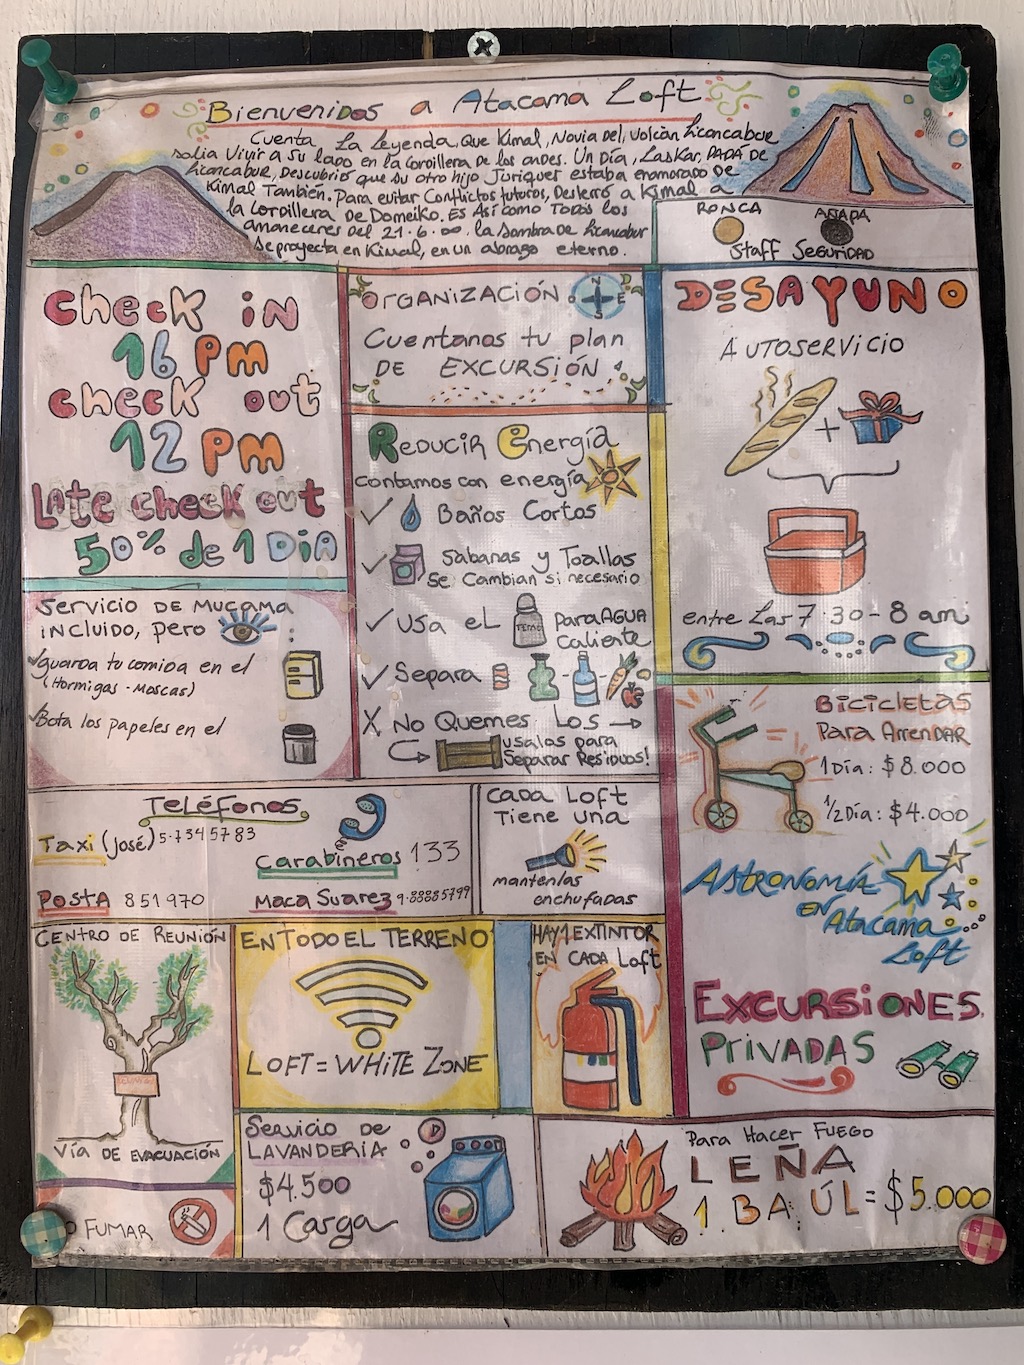 Bienvenidos a Atacama Loft
Cuenta La Leyenda, Que Kimal, Novia Del, Volcán Licancabur
solia Vivir a Su lado en la Cordillera de los andes. Un Día, Laskar, PAPÁ DE
Licancabur, Descubrió que su otro hijo Juriquer estaba enamorado de
Kimal También. Para evitar Conflictos futuros, Desterró a Kimal a
la Cordillera De Domeiko. Es Así como Todos los
amaneceres del 21.6.00 la sombra de Licancabur
se proyecta en Kimal, en un abrazo eterno.
RONCA
Staff
AÑAPA
SEGURIDAD
Check in
16 Pm
check out
12 PM
Late check out
50% de 1 Día
Servicio DE MUCAMA
INCLUIDO, pero
guarda tu comida en el
(Hormigas - Moscas)
Bota los papeles en el
ORGANIZACIÓN
N
E
Cuentanos tu plan
DE EXCURSIÓN
Reducir Energía
contamos con energía
Baños Cortos
Sabanas y Toallas
Se Cambian si necesario
Usa el
TERMO
Para AGUA
Caliente
Separa
X No Quemes Los
usalas para
Separar Residuos!
DESAYUNO
AUTOSERVICIO
+
entre Las 7:30 - 8 am
Bicicletas
Para Arrendar
1 Día: $8.000
1/2 Día: $4.000
Teléfonos
Taxi (José) 5-7345783
Carabineros 133
Posta 851970
Maca Suarez 9-88885799
CADA LOFT
Tiene una
mantenlas
enchufadas
ASTRONOMÍA
EN
Atacama
Loft
EXCURSIONES
PRIVADAS
CENTRO DE REUNIÓN
VÍA DE EVACUACIÓN
EN TODO EL TERRENO
LOFT = WHITE ZONE
HAY 1 EXTINTOR
EN CADA Loft
O FUMAR
Servicio DE
LAVANDERIA
$4.500
1 Carga
Para Hacer FUEGO
LEÑA
1. BAÚL = $5.000